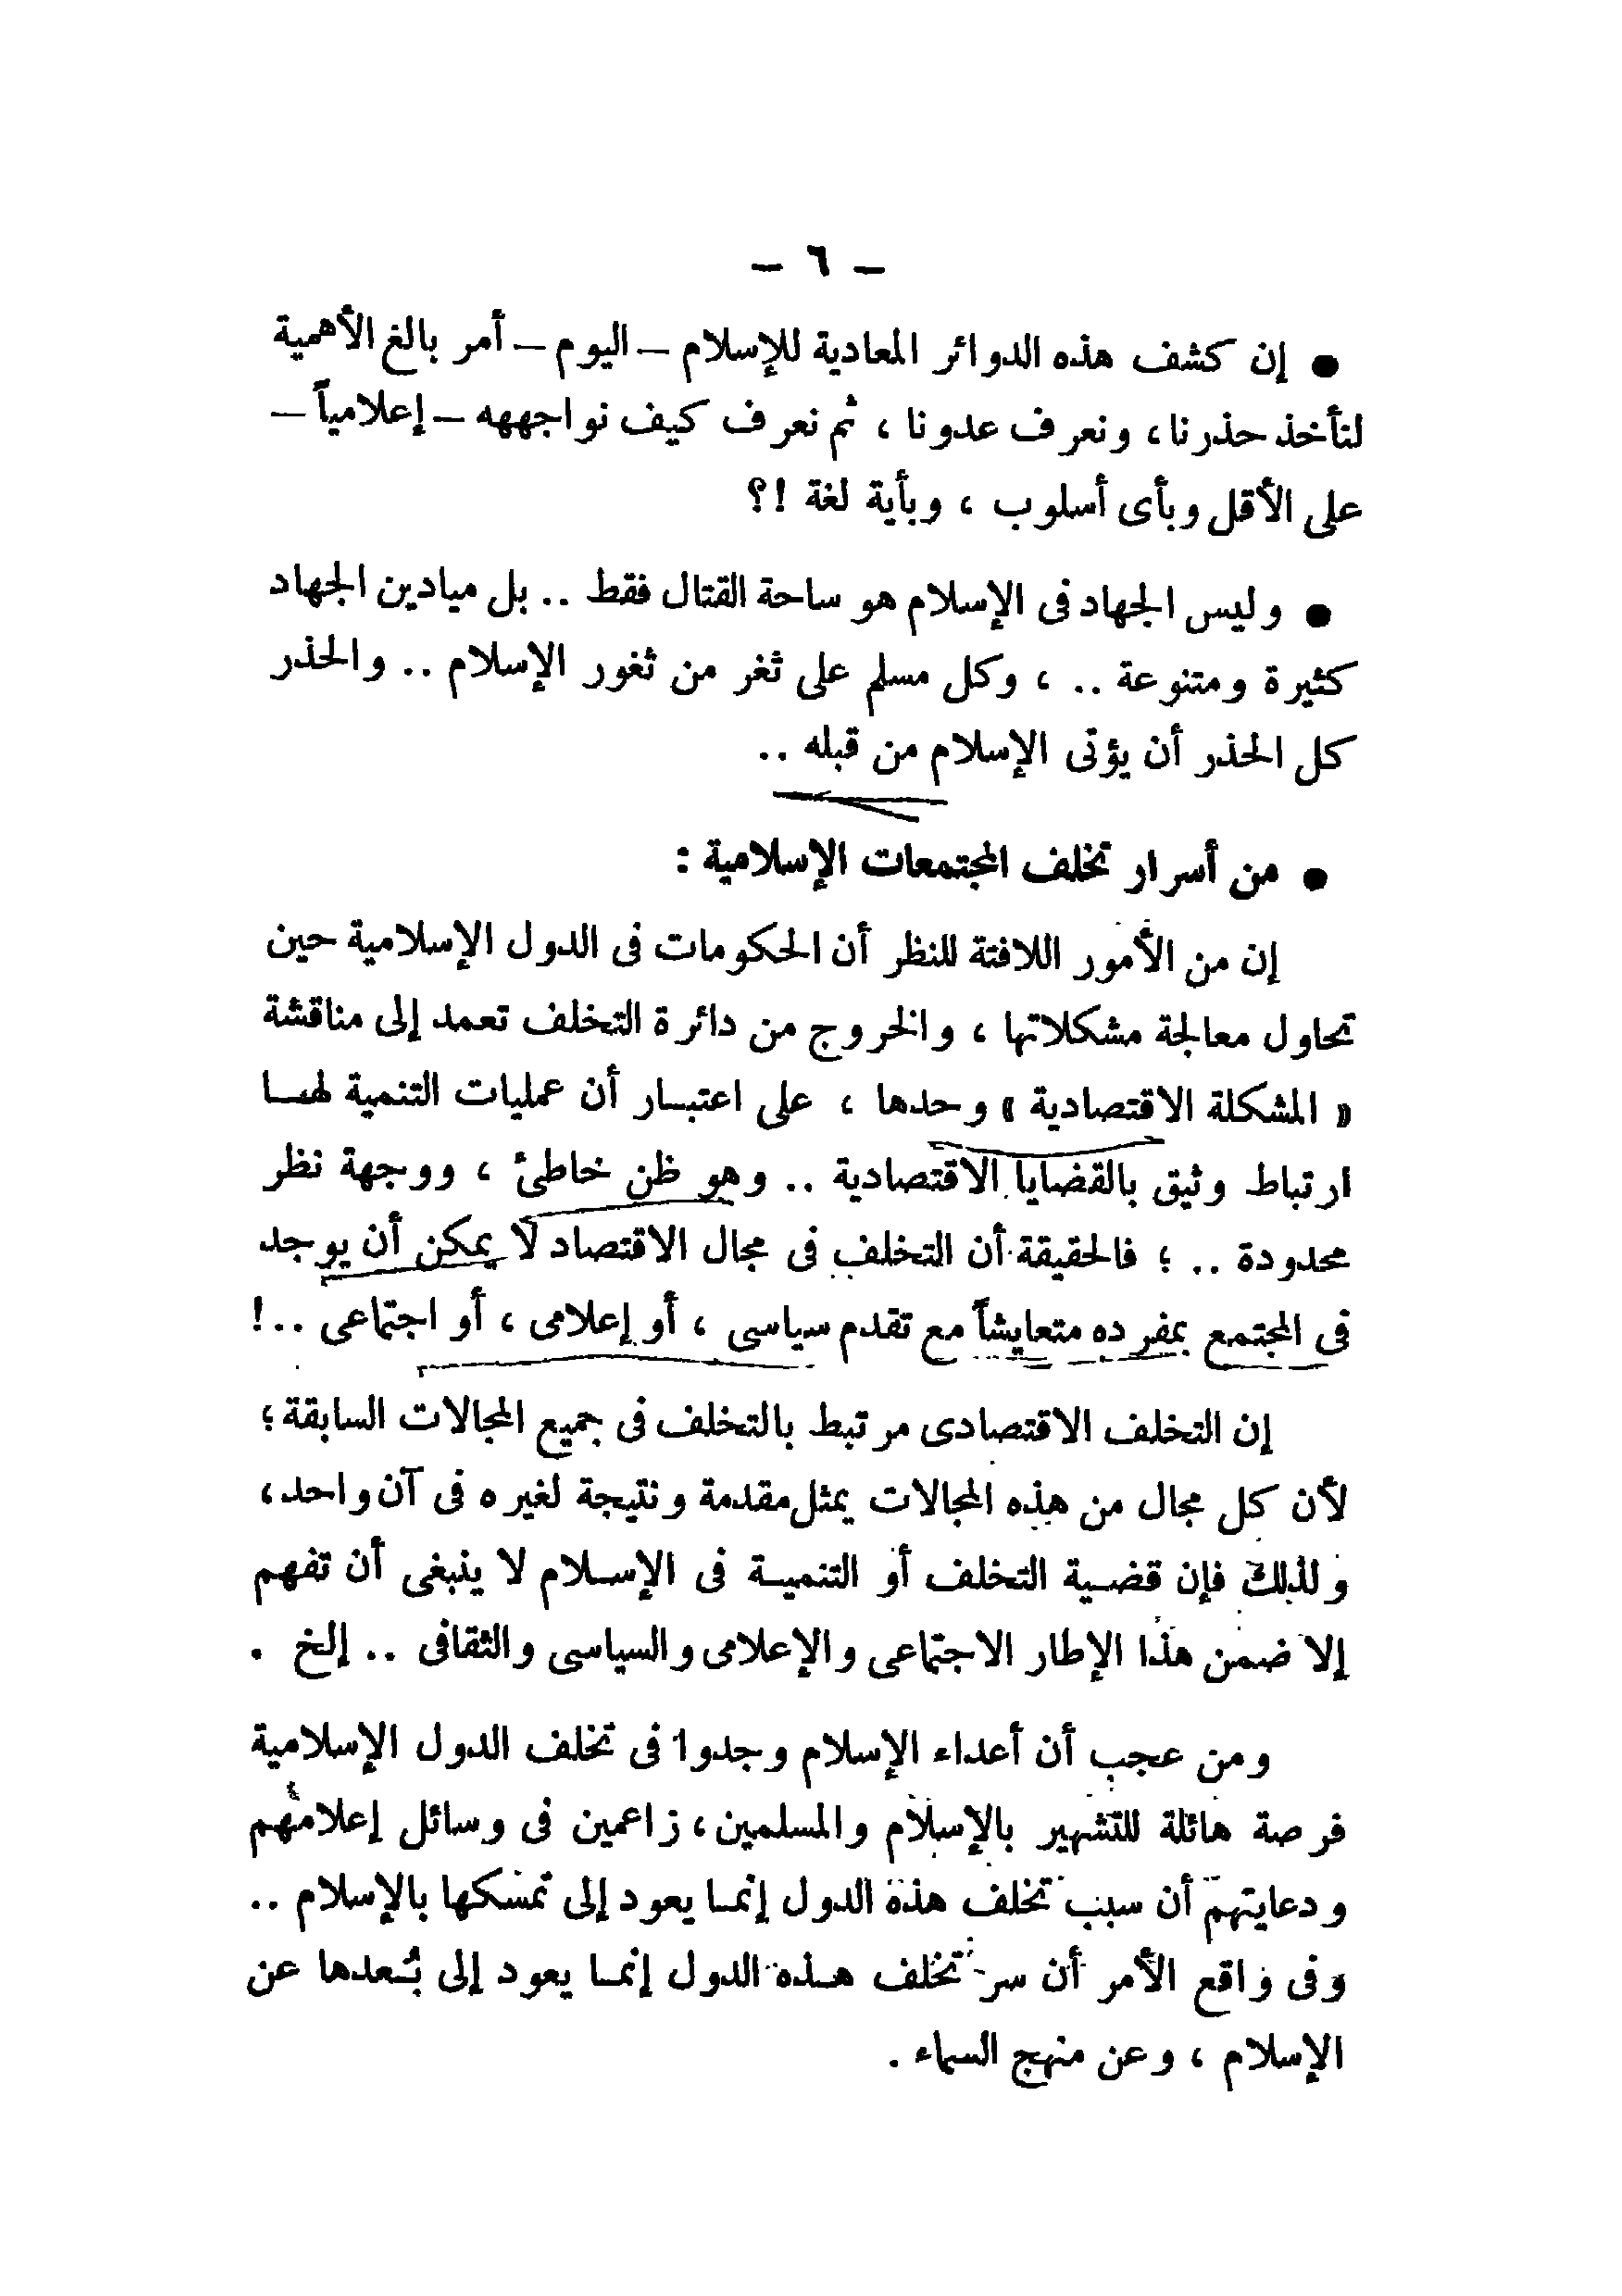 – ٦ –
● إن كشف هذه الدوائر المعادية للإسلام – اليوم – أمر بالغ الأهمية
لنأخذ حذرنا ، ونعرف عدونا ، ثم نعرف كيف نواجهه – إعلامياً –
على الأقل وبأى أسلوب ، وبأية لغة !؟
● وليس الجهاد فى الإسلام هو ساحة القتال فقط .. بل ميادين الجهاد
كثيرة ومتنوعة .. ، وكل مسلم على ثغر من ثغور الإسلام .. والحذر
كل الحذر أن يؤتى الإسلام من قبله ..
● من أسرار تخلف المجتمعات الإسلامية :
إن من الأمور اللافتة للنظر أن الحكومات فى الدول الإسلامية حين
تحاول معالجة مشكلاتها ، والخروج من دائرة التخلف تعمد إلى مناقشة
« المشكلة الاقتصادية » وحدها ، على اعتبار أن عمليات التنمية لها
ارتباط وثيق بالقضايا الاقتصادية .. وهو ظن خاطئ ، ووجهة نظر
محدودة .. ؛ فالحقيقة أن التخلف فى مجال الاقتصاد لا يمكن أن يوجد
فى المجتمع بمفرده متعايشاً مع تقدم سياسى ، أو إعلامى ، أو اجتماعى ..!
إن التخلف الاقتصادى مرتبط بالتخلف فى جميع المجالات السابقة ؛
لأن كل مجال من هذه المجالات يمثل مقدمة ونتيجة لغيره فى آن واحد ،
ولذلك فإن قضية التخلف أو التنمية فى الإسلام لا ينبغى أن تفهم
إلا ضمن هذا الإطار الاجتماعى والإعلامى والسياسى والثقافى .. إلخ .
ومن عجب أن أعداء الإسلام وجدوا فى تخلف الدول الإسلامية
فرصة هائلة للتشهير بالإسلام والمسلمين ، زاعمين فى وسائل إعلامهم
ودعايتهم أن سبب تخلف هذه الدول إنما يعود إلى تمسكها بالإسلام ..
وفى واقع الأمر أن سر تخلف هذه الدول إنما يعود إلى بُعدها عن
الإسلام ، وعن منهج السماء .